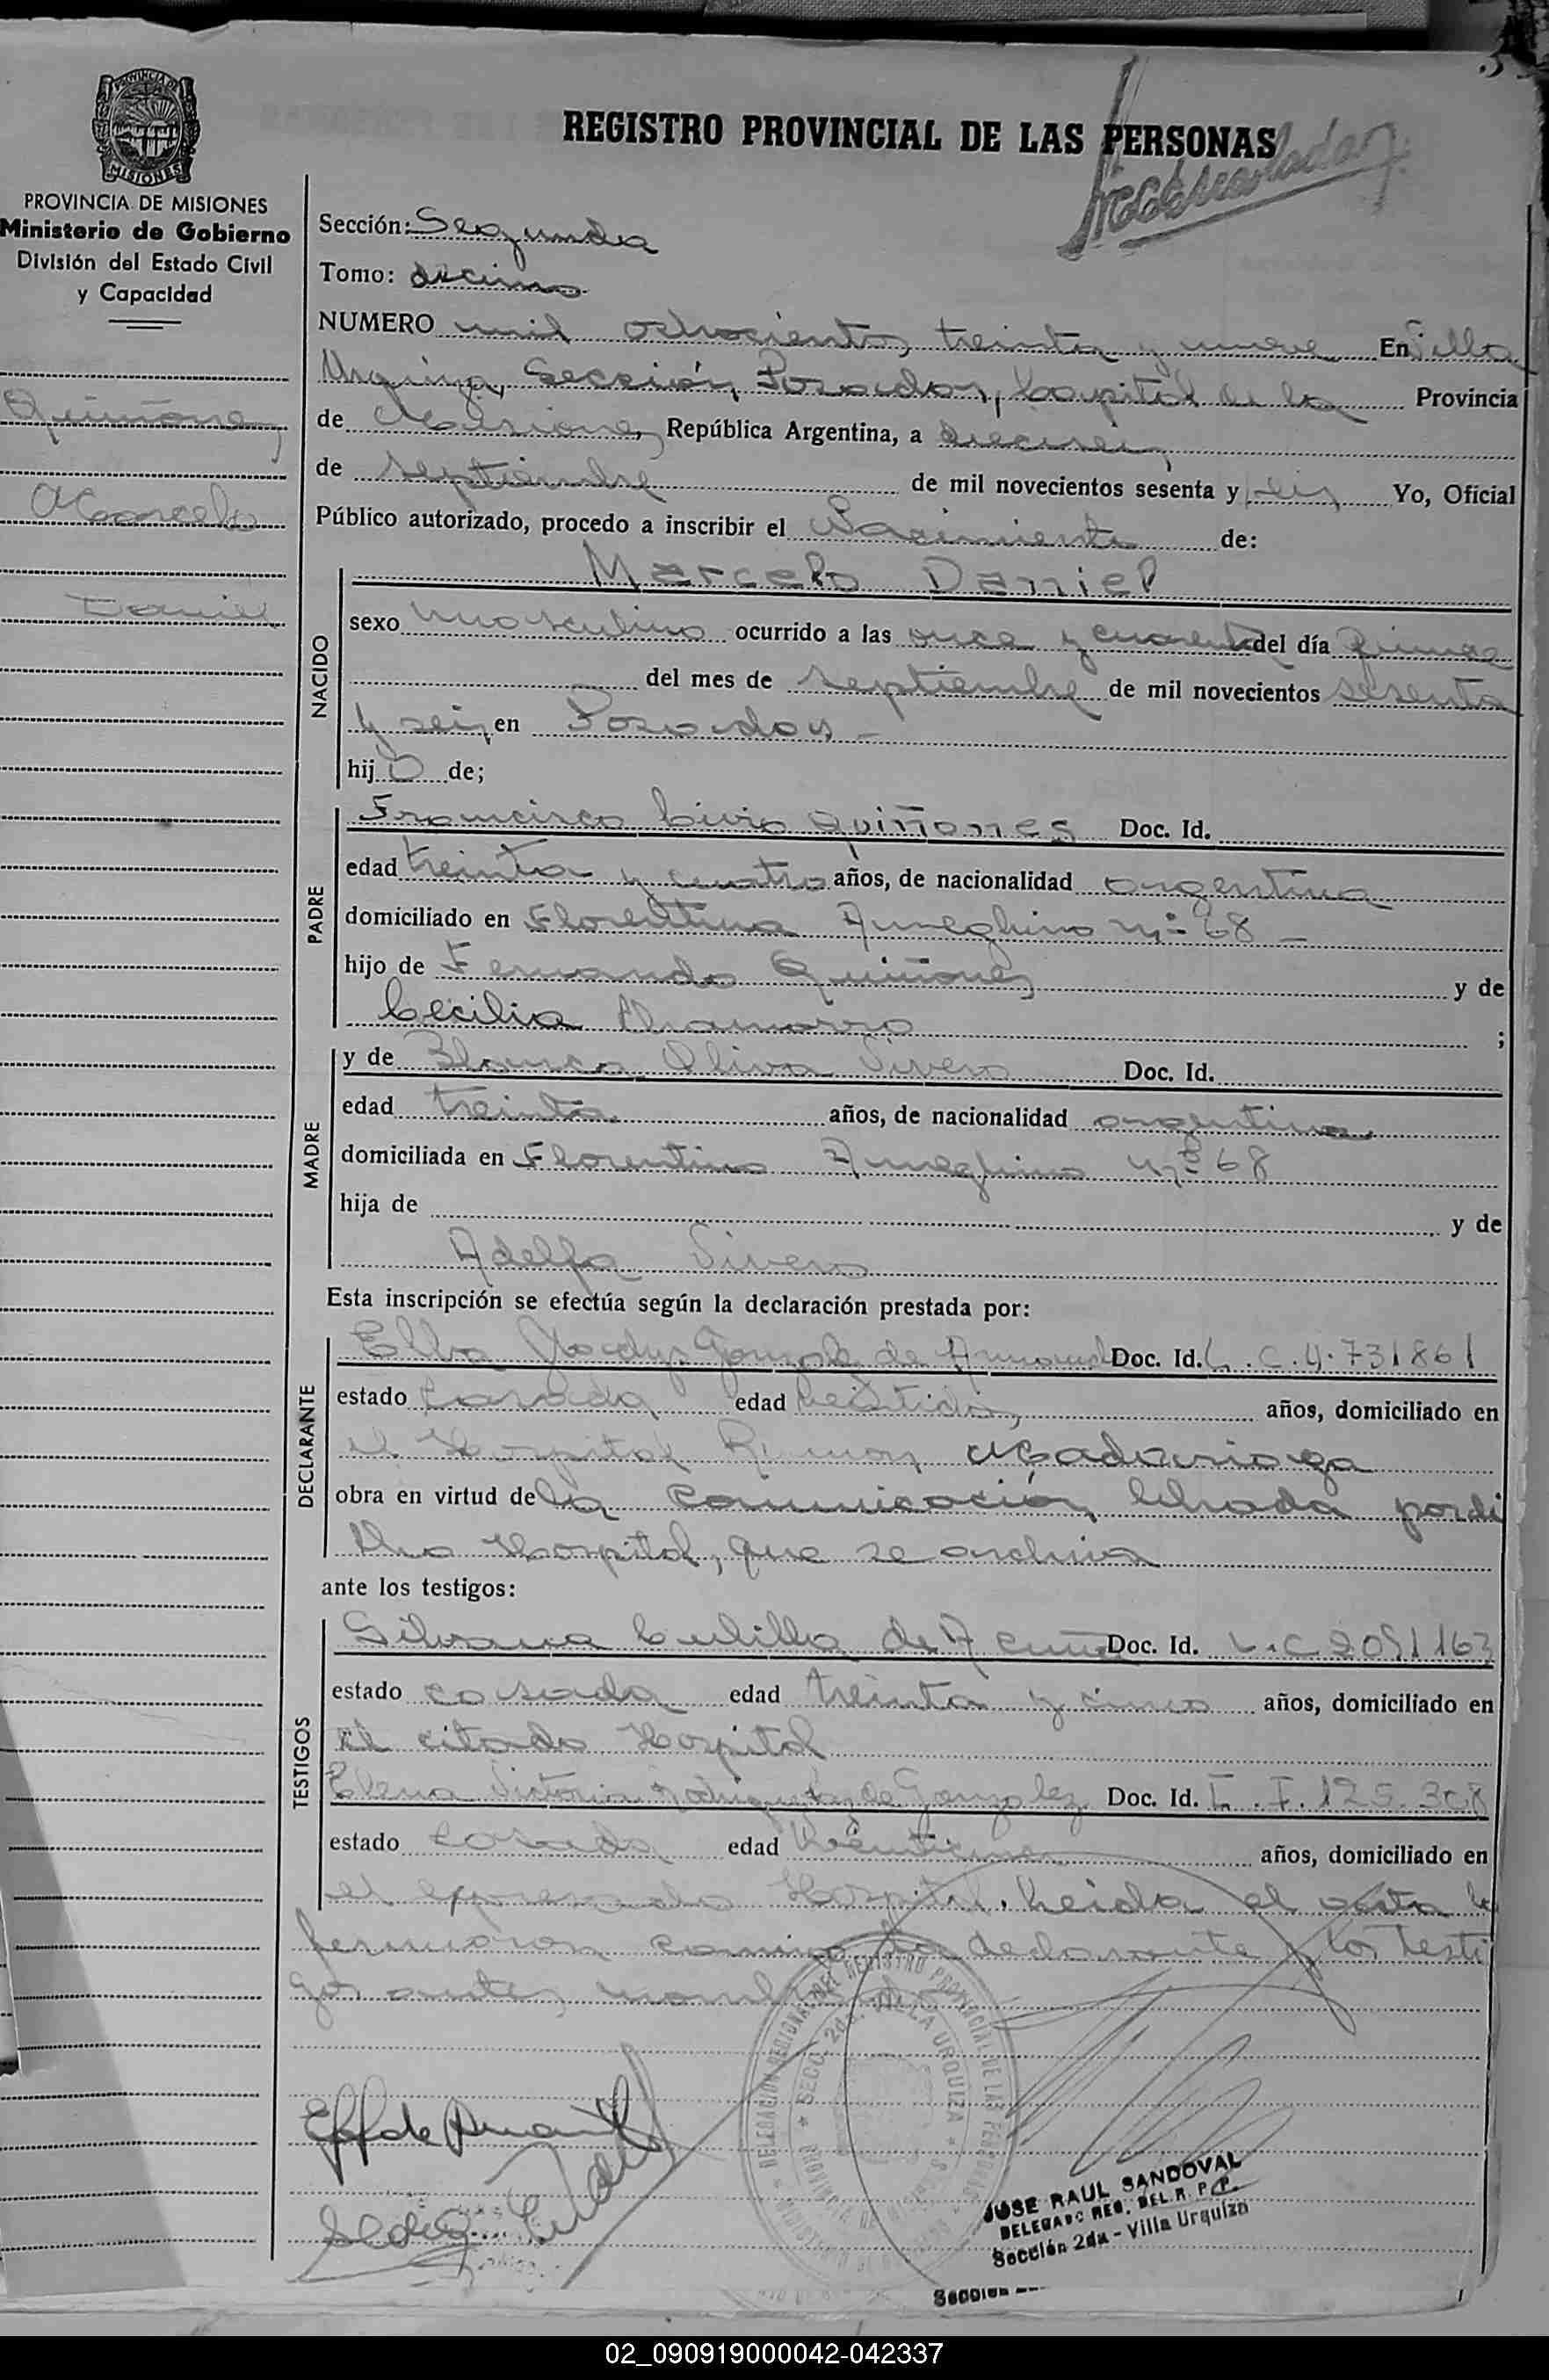 PROVINCIA DE MISIONES
Ministerio de Gobierno
División del Estado Civil
y Capacidad
Quiñones
Marcelo
Daniel
REGISTRO PROVINCIAL DE LAS PERSONAS
Sección: Segunda
Tomo: decimo
NUMERO mil ochocientos treinta y nueve En Villa
Urquiza, Sección Posadas, Capital de la Provincia
de Misiones, República Argentina, a dieciseis
de septiembre de mil novecientos sesenta y seis Yo, Oficial
Público autorizado, procedo a inscribir el Nacimiento de:
NACIDO
Marcelo Daniel
sexo masculino ocurrido a las once y cuarenta del día quince
del mes de septiembre de mil novecientos sesenta
y seis en Posadas -
hijo de;
PADRE
Francisco Livio Quiñones Doc. Id.
edad treinta y cuatro años, de nacionalidad argentina
domiciliado en Florentino Ameghino nº 68 -
hijo de Fernando Quiñones y de
Cecilia Chamorro ;
MADRE
y de Blanca Oliva Vivero Doc. Id.
edad treinta años, de nacionalidad argentina
domiciliada en Florentino Ameghino nº 68
hija de y de
Adelfa Vivero
Esta inscripción se efectúa según la declaración prestada por:
DECLARANTE
Elba Gonzalez de Doc. Id. L.C.4.731861
estado casada edad años, domiciliado en
el Hospital Ramon Madariaga
obra en virtud de la comunicación librada por di
cho Hospital, que se archiva
ante los testigos:
TESTIGOS
Silvana de Acuña Doc. Id. L.C 2051163
estado casada edad treinta y cinco años, domiciliado en
el citado Hospital
Elena Victoria Rodriguez de Gonzalez Doc. Id. 125.308
estado casada edad años, domiciliado en
el expresado Hospital. Leida el acta la
firmaron conmigo la declarante y los testi
gos antes nombrados
DELEGACION REGIONAL DEL REGISTRO PROVINCIAL DE LAS PERSONAS
SECC. 2da. VILLA URQUIZA
JOSE RAUL SANDOVAL
DELEGADO REG. DEL R. P. P.
Sección 2da - Villa Urquiza
02_090919000042-042337